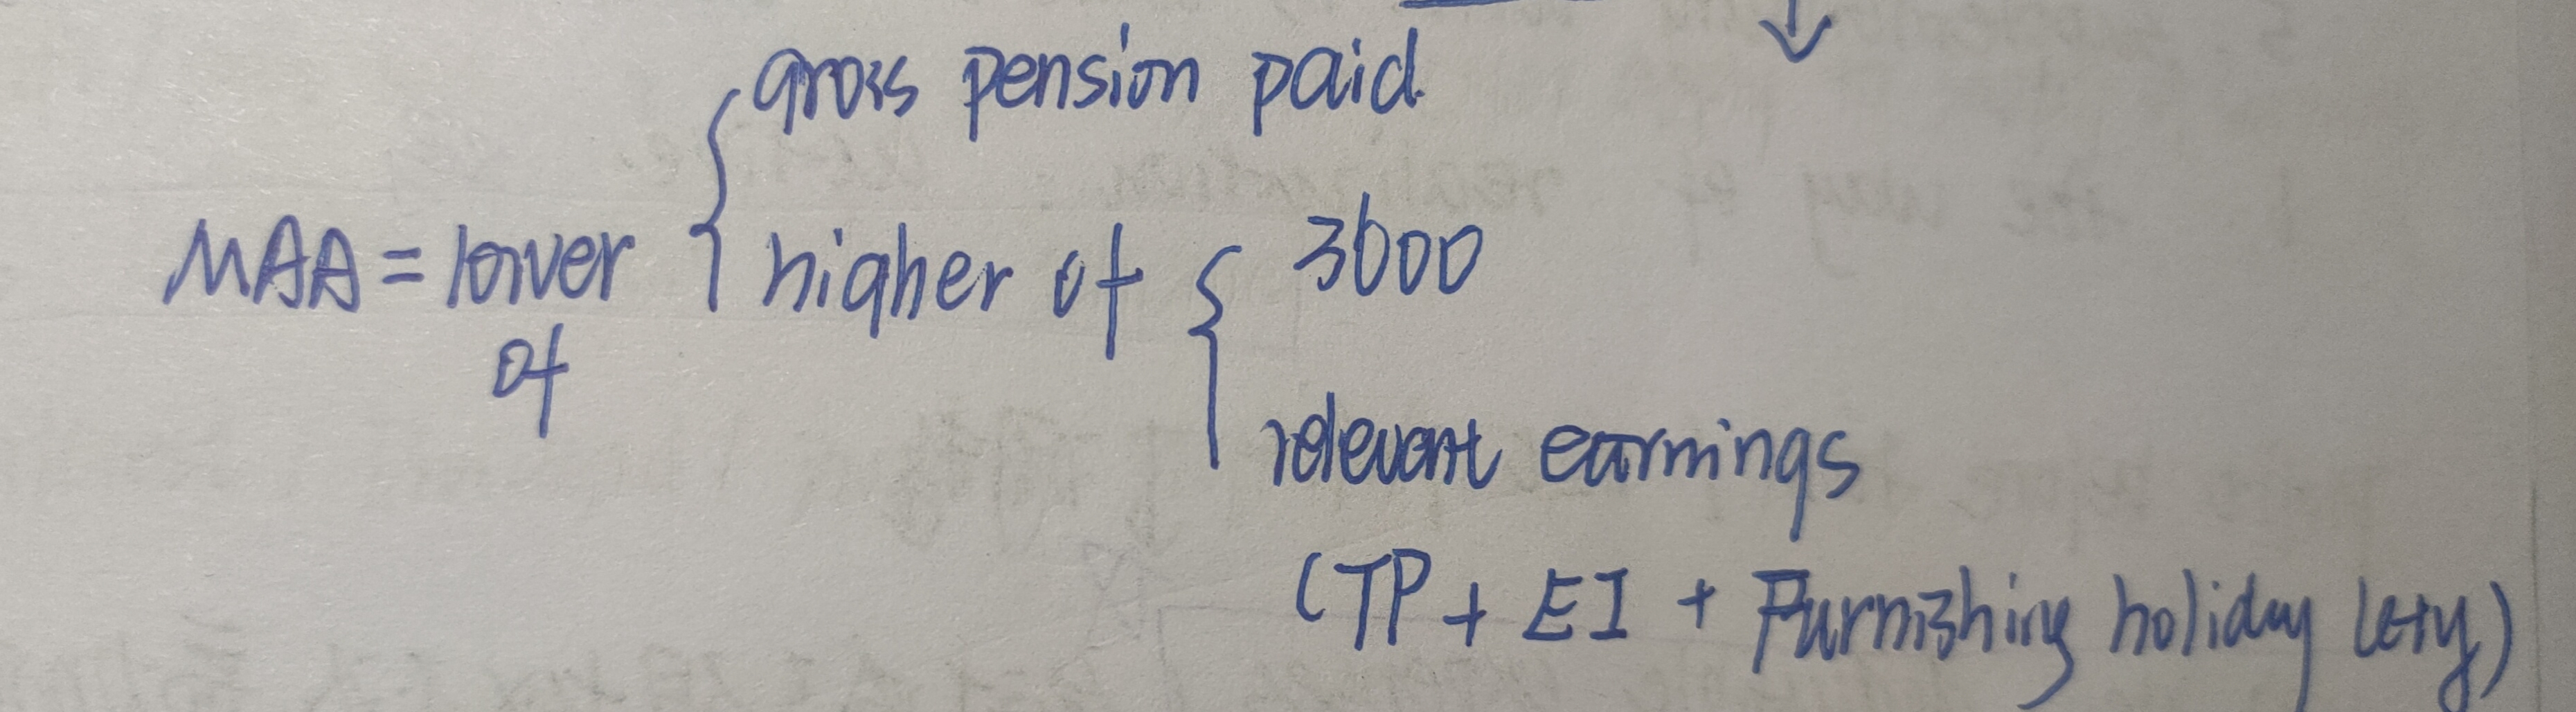 gross pension paid.
MAA = lower of
higher of
3600
relevant earnings
(TP + EI + Furnishing holiday lety)